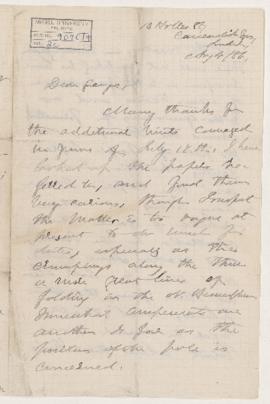 McGILL UNIVERSITY
ACC. NO.
REF.
13 Holles St
Cavendish Sq
London
Aug 4/86
Dear
Many thanks for
the additional hints conveyed
in yours of July 18. I have
looked up the papers re-
ferred to, and find them
very curious, though I suspect
the matter is too vague at
present to do much for
dates, especially as these
crumplings along the three
or more great lines of
folding in the N. Hemisphere
somewhat compensate one
another so far as the
position of the pole is
concerned.